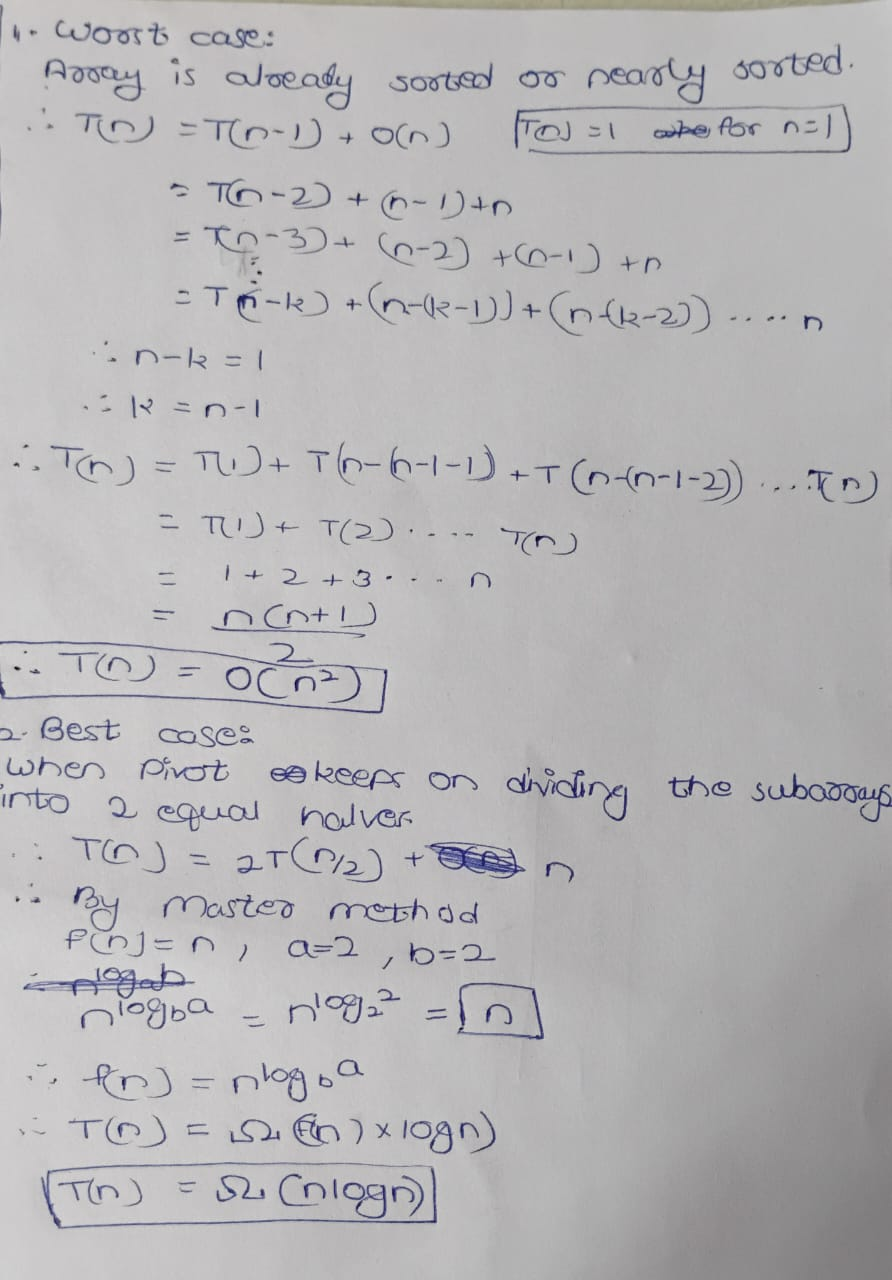 1. Worst case:
Array is already sorted or nearly sorted.
∴ T(n) = T(n-1) + O(n) T(n) = 1 for n=1
= T(n-2) + (n-1)+n
= T(n-3) + (n-2) + (n-1) + n
⋮
= T(n-k) + (n-(k-1)) + (n-(k-2)) ..... n
∴ n-k = 1
∴ k = n-1
∴ T(n) = T(1) + T(n-(n-1-1)) + T(n-(n-1-2)) .... T(n)
= T(1) + T(2) ..... T(n)
= 1 + 2 + 3 .... n
= n(n+1)
2
∴ T(n) = O(n²)
2. Best case:
When pivot keeps on dividing the subarrays
into 2 equal halves
∴ T(n) = 2T(n/2) + n
∴ By Master method
f(n) = n, a=2, b=2
n^log_b a = n^log_2 2 = n
∴ f(n) = n^log_b a
∴ T(n) = Ω(f(n) x logn)
T(n) = Ω(nlogn)